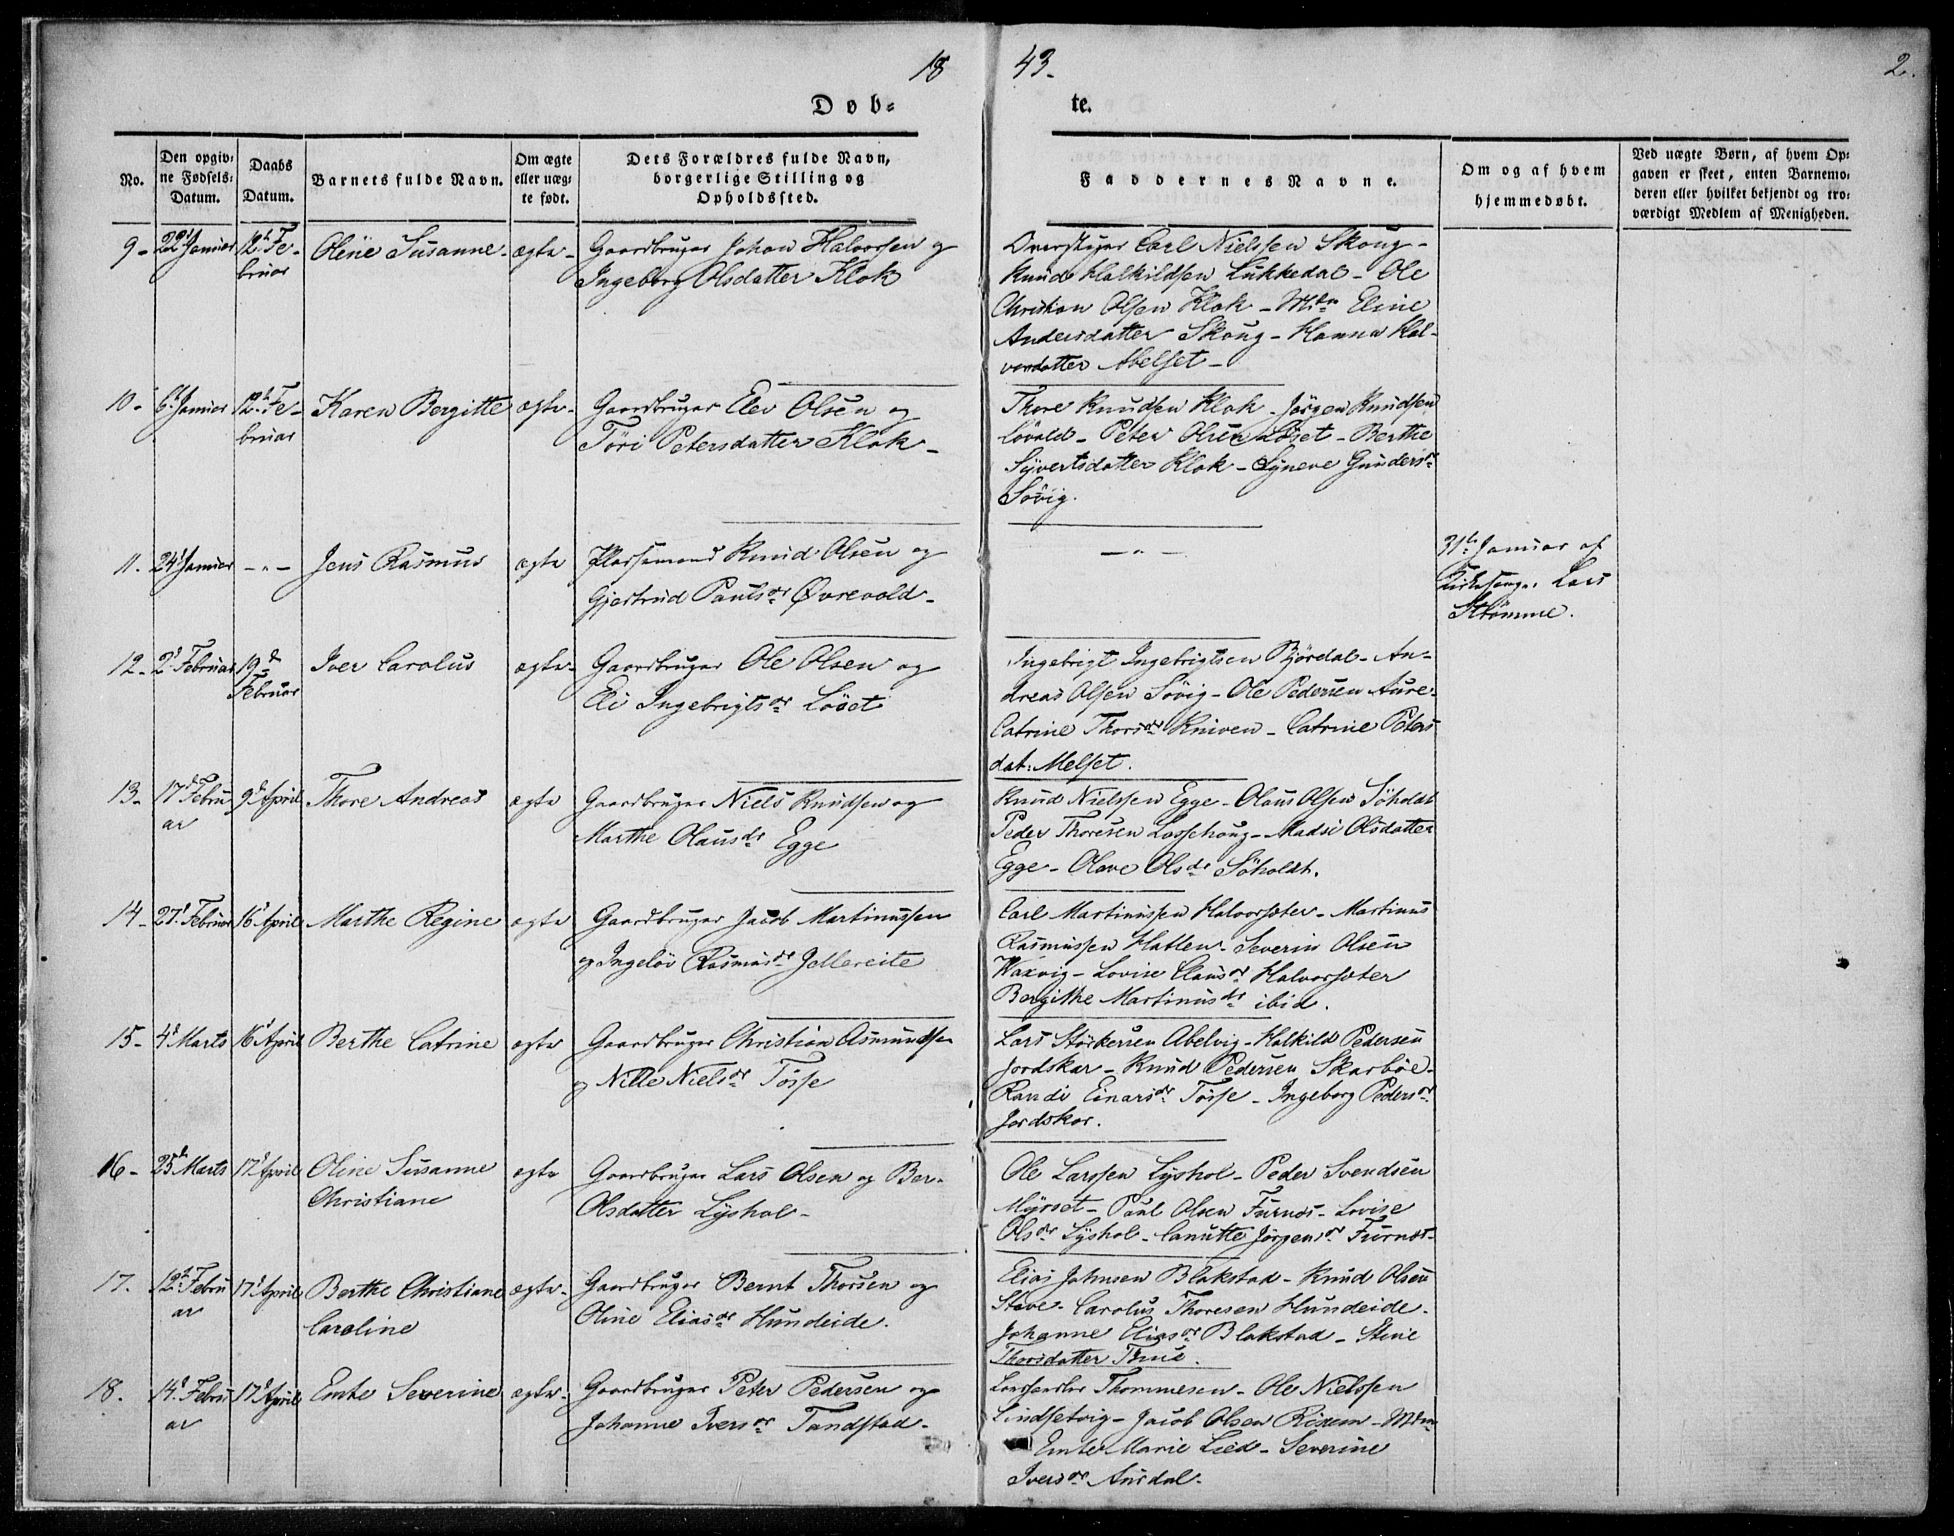 18 43. 2.
Døb= te.
No.
Den opgiv=
ne Fødsels=
Datum.
Daabs
Datum.
Barnets fulde Navn.
Om ægte
eller uæg=
te født.
Dets Forældres fulde Navn,
borgerlige Stilling og
Opholdssted.
Faddernes Navne.
Om og af hvem
hjemmedøbt.
Ved uægte Børn, af hvem Op=
gaven er skeet, enten Barnemo=
deren eller hvilket bekjendt og tro=
værdigt Medlem af Menigheden.
9-
22d Januar
12t Fe-
bruar
Oline Susanne-
ægte-
Gaardbruger Johan Halvorsen og
Ingeborg Olsdatter Klok
Carl Nielssen Skoug-
Knud Halkildsen Lukkedal- Ole
Christian Olsen Klok- Mdm Eline
Andersdatter Skoug- Hanna Hal-
vorsdatter Abelset-
10-
6t Januar
12t Fe-
bruar
Karen Bergitte
ægte-
Gaardbruger Elev Olsen og
Töri Petersdatter Klok-
Thore Knudsen Klok- Jörgen Knudsen
Lövold- Peter Olsen Löset- Berthe
Syvertsdatter Klok- Syneve Gundersdr
Sövig.
11.
24d Januar
-"-
Jens Rasmus
ægte
Plassemand Knud Olsen og
Gjertrud Paulsdr Øvrevold-
-"-
31te Januar af
Kirkesang. Lars
Strömme.
12-
2d Februar
19d
Februar
Iver Carolus
ægte-
Gaardbruger Ole Olsen og
Eli Ingebrigtsdr Löset
Ingebrigt Ingebrigtsen Björdal- An-
dreas Olsen Sövig- Ole Pedersen Aure-
Catrine Thorsdr Kniven- Catrine Peters
dat: Melset.
13-
17d Febru
ar
9d April
Thore Andreas
ægte
Gaardbruger Niels Knudsen og
Marthe Olausdr Egge
Knud Nielssen Egge- Olaus Olsen Söholdt
Peder Thoresen Lossehoug- Madsi Olsdatter
Egge- Olave Olsdr Söholdt.
14-
27d Februar
16d April
Marthe Regine
ægte
Gaardbruger Jacob Martinussen
og Ingelöv Rasmusdr Jellereite
Carl Martinussen Halvorsæter- Martinus
Rasmussen Hatlen- Severin Olsen
Waxvig- Lovise Clausdr Halvorsæter
Bergithe Martinusdr ibid.
15-
4d Marts
16d April
Berthe Catrine
ægte
Gaardbruger Christian Asmundsen
og Nille Nielsdr Tösse
Lars Storkersen Abelvig- Halkild Pedersen
Jordskar- Knud Pedersen Skarböe-
Randi Einarsdr Tösse- Ingeborg Pedersdr
Jordskar.
16-
25d Marts
17d April
Oline Susanne
Christiane
ægte
Gaardbruger Lars Olsen og Ber-
Olsdatter Lyshol-
Ole Larssen Lyshol- Peder Svendsen
Myrset- Paul Olsen Furnæs- Lovise
Olsdr Lyshol- Canutte Jörgensdr Furnæs-
17.
12t Febru
ar
17d April
Berthe Christiane
Caroline
ægte-
Gaardbruger Bernt Thorsen og
Oline Eliasdr Hundeide.
Elias Johnsen Blakstad- Knud Olsen
Stave- Carolus Thoresen Hundeide-
Johanne Eliasdr Blakstad- Stine
Thorsdatter Thue.
18.
14d Febru
ar
17d April
Emte Severine
ægte-
Gaardbruger Peter Pedersen og
Johanne Iversdr Tandstad-
Thommesen- Ole Nielssen
Lindsetvig- Jacob Olsen Rixem- Mdm
Emte Marie Lied- Severine
Iversdr Aursdal.